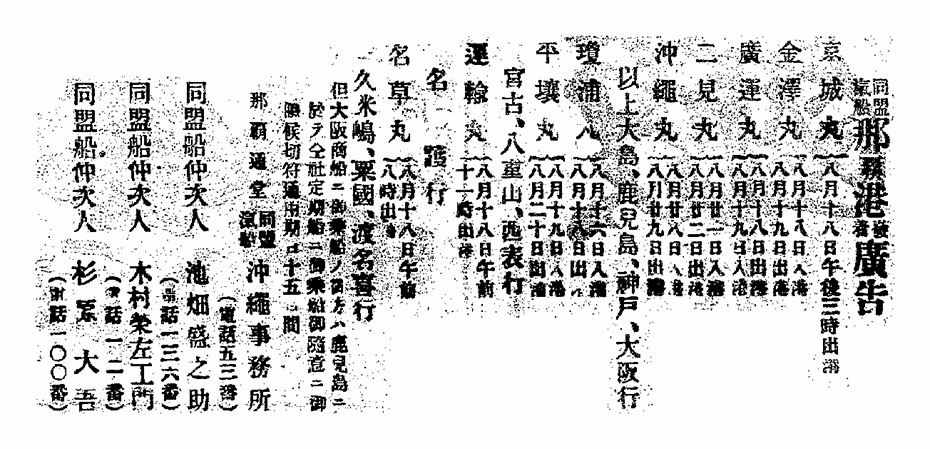 同盟汽船那覇港發着廣告
京城丸 八月十八日午後三時出港
金澤丸 八月十八日入港
八月十九日出港
廣運丸 八月十八日出港
八月十九日入港
二見丸 八月廿一日入港
八月廿二日出港
沖繩丸 八月廿八日入港
八月廿九日出港
以上大島、鹿兒島、神戸、大阪行
瓊浦丸 八月十六日入港
八月十八日出港
平壤丸 八月十八日入港
八月二十日出港
宮古、八重山、西表行
運輸丸 八月十八日午前
十一時出港
名護行
名草丸 八月十八日午前
八時出港
久米嶋、粟國、渡名喜行
但大阪商船ニ御乘船ノ御方ハ鹿兒島ニ
於テ仝社定期船ニ御乘繼御隨意ニ御
座候切符通用期日十五日間
那覇通堂 同盟汽船 沖繩事務所
(電話五三番)
同盟船仲次人 池畑盛之助
(電話一三六番)
同盟船仲次人 木村榮左工門
(電話一二一番)
同盟船仲次人 杉原大吾
(電話一〇〇番)